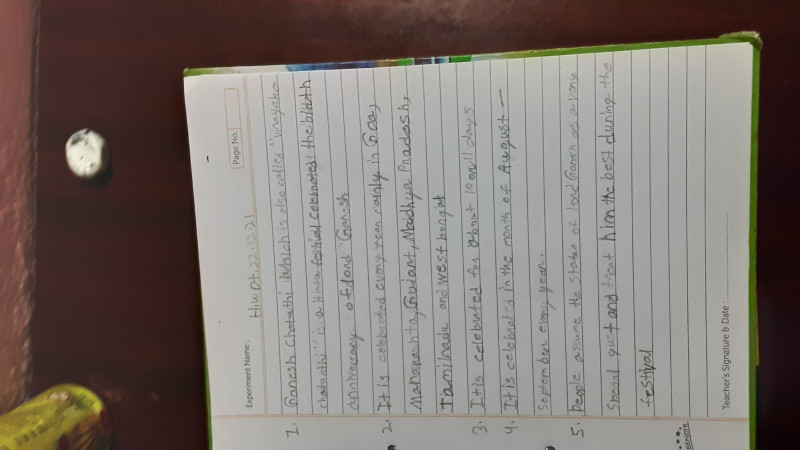 Experiment Name :
Page No.
H.W Dt. 22.12.21
1. Ganesh Chaturthi which is also calles "vinayaka
chaturthi" is a Hindu festival celebrates the birth
anniversary of lord Ganesh
2. It is celebrated every year mainly in Goa,
Maharashta, Gujarat, Madhya Pradesh,
Tamilnadu and west bengal
3. It is celebrated for about 10 or 11 days
4. It is celebrated in the month of August -
September every year.
5. people assume the statue of lord Ganesh as a very
special gust and treat him the best during the
festival
Teacher's Signature & Date :